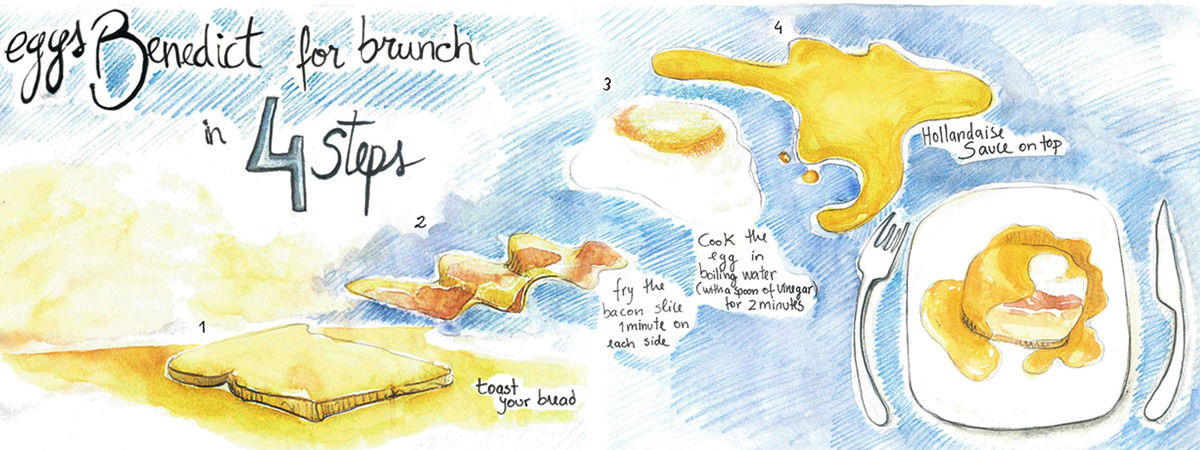 eggs Benedict for brunch
in 4 steps
1
toast
your bread
2
fry the
bacon slice
1 minute on
each side
3
Cook the
egg in
boiling water
(with a spoon of vinegar)
for 2 minutes
4
Hollandaise
Sauce on top